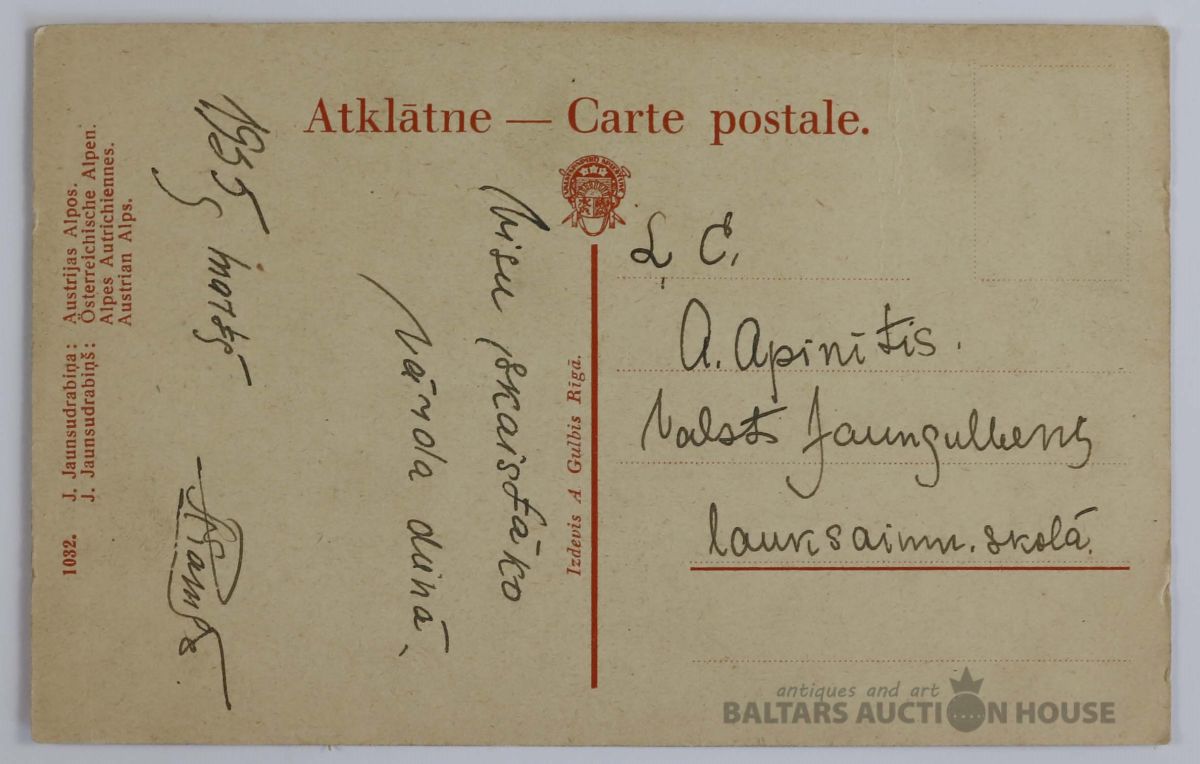 Atklātne — Carte postale.
1032. J. Jaunsudrabiņa: Austrijas Alpos.
J. Jaunsudrabiņš: Österreichische Alpen.
Alpes Autrichiennes.
Austrian Alps.
Visu skaistāko
Vārda dienā.
1935 martā
Izdevis A Gulbis Rīgā.
Ļ. C.
A. Apinītis.
Valsts Jaungulbenes
lauksaimn. skolā.
antiques and art
BALTARS AUCTION HOUSE